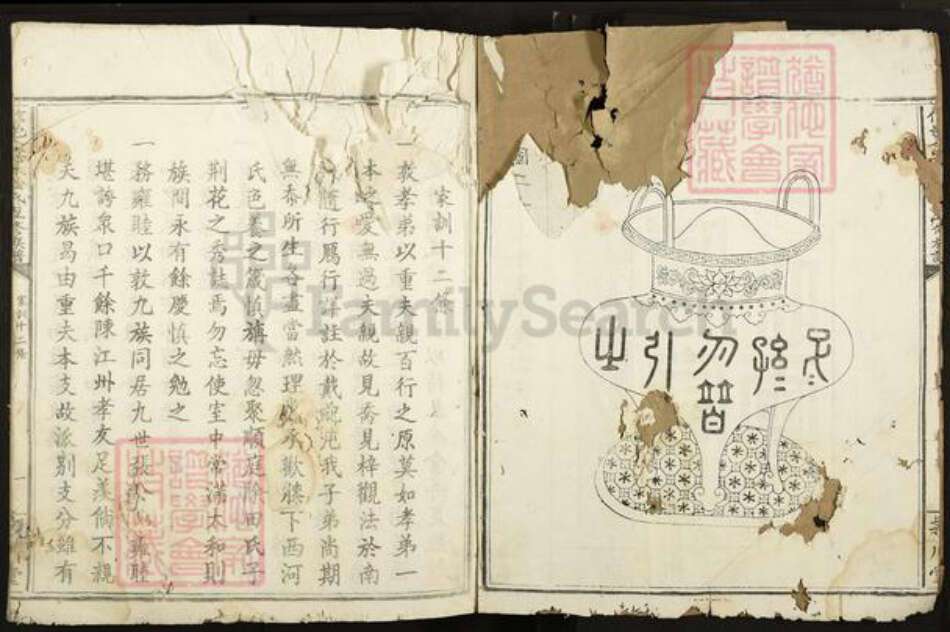 子孫
勿替
引之
圖二
家訓十二條
一敦孝弟以重天親百行之原莫如孝弟一
本之愛無過天親故見喬見梓觀法於南
隨行鴈行詳註於戴凡我子弟尚期
無忝所生各盡當然理承歡膝下西河
氏色養之箴慎旃毋忽聚順庭除田氏子
荆花之秀誌焉勿忘使室中常滿太和則
族間永有餘慶慎之勉之
一務雍睦以敦九族同居九世張公雍睦
堪誇衆口千餘陳江州孝友足羨倘不親
夫九族曷由重夫本支故派别支分雖有
家訓十二條
一
FamilySearch
譜學會